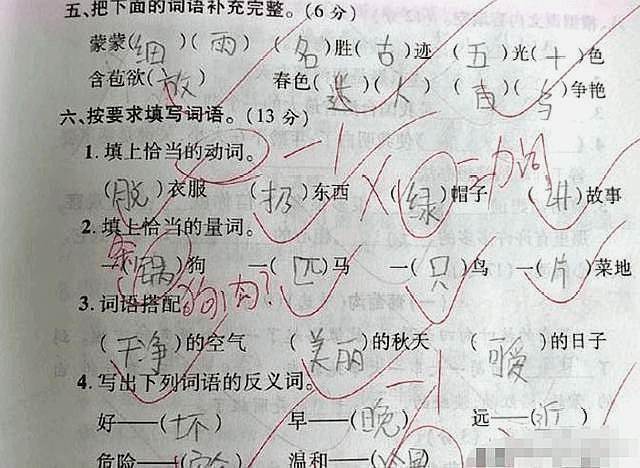 五、把下面的词语补充完整。(6分)
蒙蒙(细)(雨) (名)胜(古)迹 (五)光(十)色
含苞欲(放) 春色(迷)(人) ( )( )争艳
六、按要求填写词语。(13分)
1. 填上恰当的动词。 -1
(脱)衣服 (扔)东西 (绿)帽子 (讲)故事
动词
2. 填上恰当的量词。
一(锅)狗 一(匹)马 一(只)鸟 一(片)菜地
条 狗肉?
3. 词语搭配
(干净)的空气 (美丽)的秋天 (可爱)的日子
4. 写出下列词语的反义词。 -1
好——(坏) 早——(晚) 远——(近)
危险—— 温和——